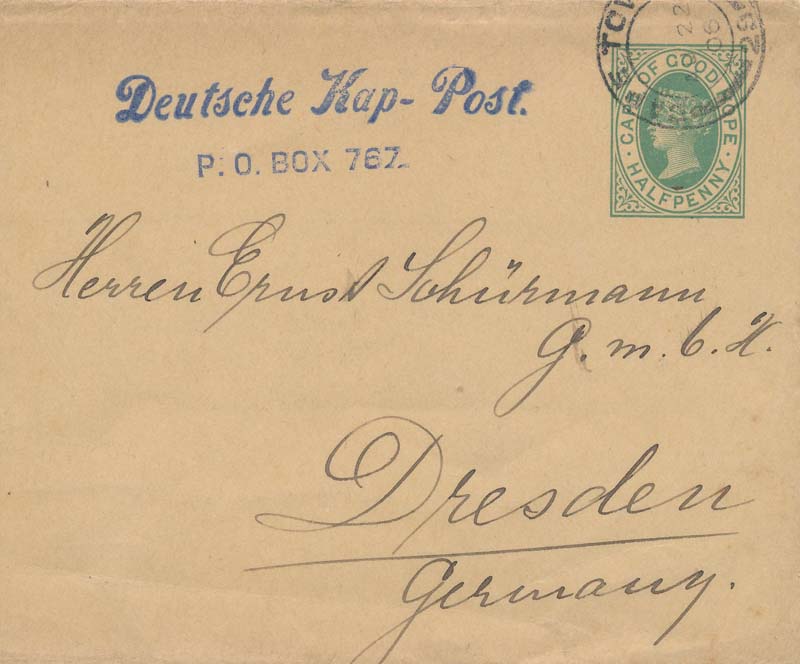 Deutsche Kap-Post.
P.O. BOX 767
CAPE OF GOOD HOPE
HALFPENNY
22
06
Herren Ernst Schürmann
G. m. b. H.
Dresden
Germany.